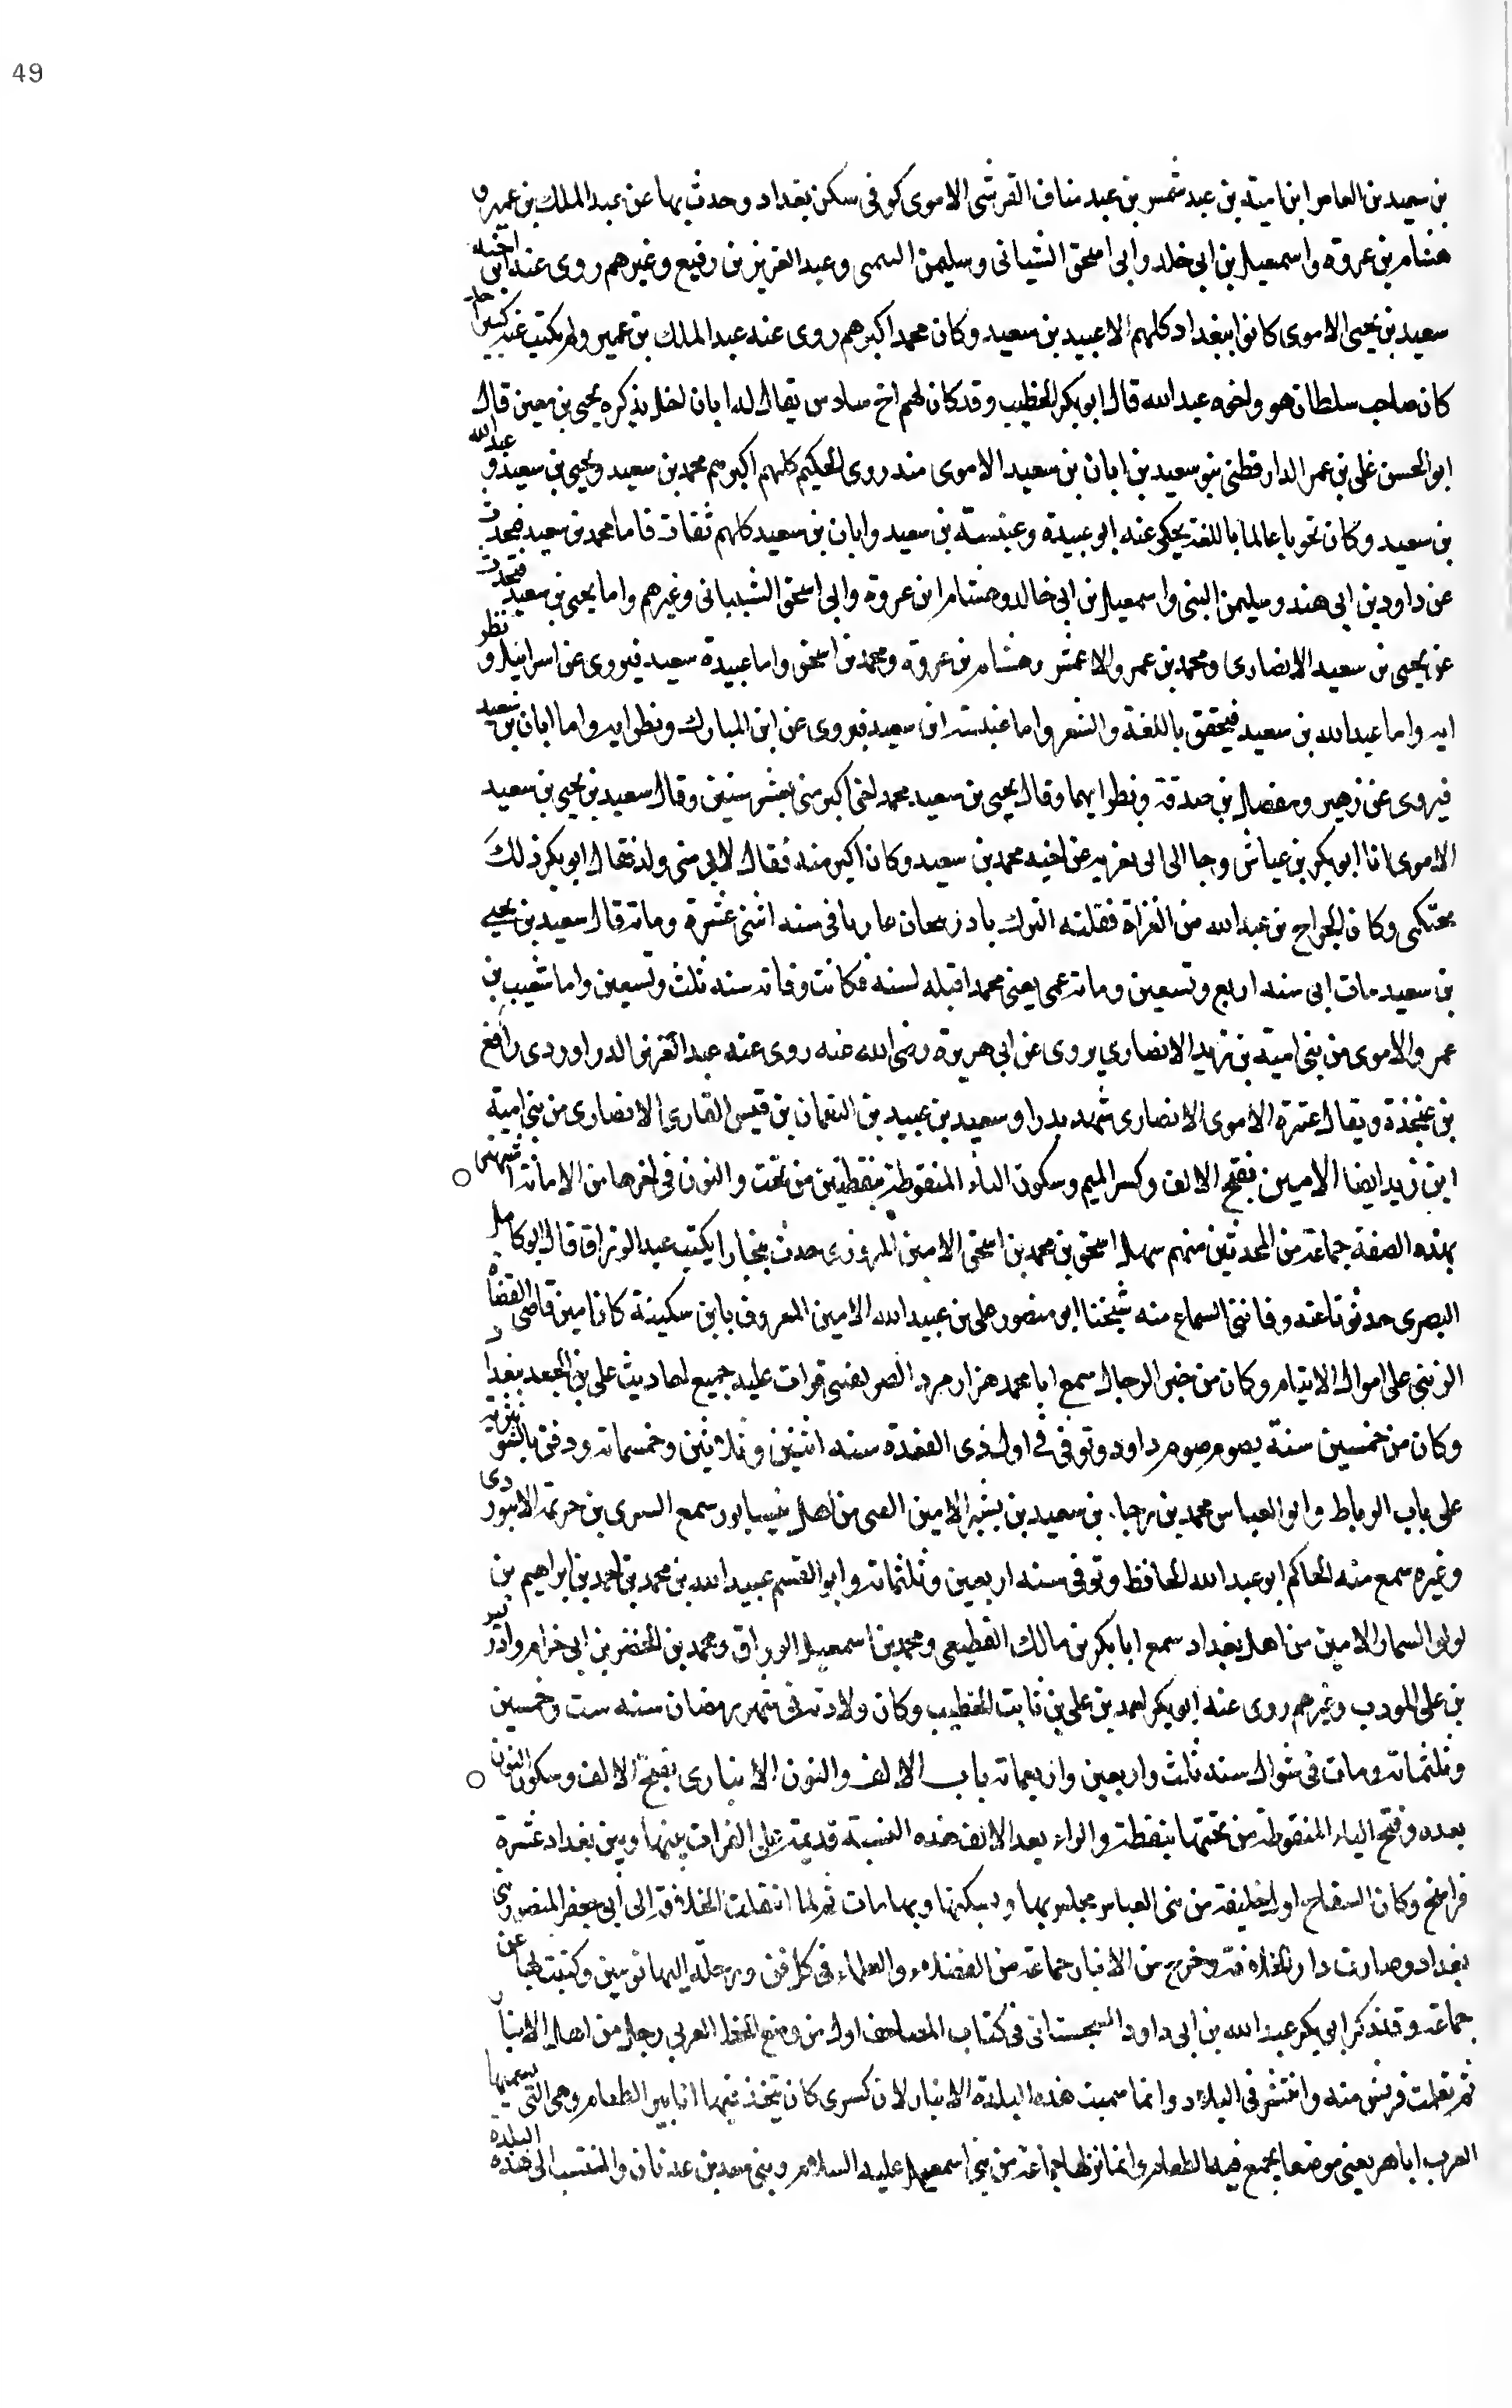 49
بن سعيد بن العاص ابن امية بن عبد شمس بن عبد مناف القرشى الاموى كوفى سكن بغداد وحدث بها عن عبد الملك بن عمير و
هشام بن عروة واسمعيل بن ابى خلد وابى اسحق الشيبانى وسليمن التيمى وعبد العزيز بن رفيع وغيرهم روى عنه ابن اخيه
سعيد بن يحيى الاموى كانوا ببغداد كلهم الا عبيد بن سعيد وكان محمد اكبرهم روى عنه عبد الملك بن عمير ولم يكتب عنه كثير احد
كان صاحب سلطان هو واخوه عبد الله قال ابو بكر الخطيب وقد كان لهم اخ سادس يقال له ابان لخل يذكره يحيى بن معين قال
ابو الحسن على بن عمر الدارقطنى بنو سعيد بن ابان بن سعيد الاموى منه روى الحكيم كلهم اكبرهم محمد بن سعيد ويحيى بن سعيد و عبد الله
بن سعيد وكان نحويا عالما باللغة يحكى عنه ابو عبيدة وعنبسة بن سعيد وابان بن سعيد كلهم ثقات فاما محمد بن سعيد فحدث
عن داود بن ابى هند وسليمن التيمى واسمعيل بن ابى خالد وهشام ابن عروة وابى اسحق الشيبانى وغيرهم واما يحيى بن سعيد فتحدث
عن يحيى بن سعيد الانصارى ومحمد بن عمر والاعمش وهشام بن عروة ومحمد بن اسحق واما عبيدة سعيد فيروى عن اسرائيل و نظر
ايه واما عبد الله بن سعيد فيحقق باللغة والشعر واما عنبسة ابن سعيد فيروى عن ابن المبارك ونظرايه واما ابان بن سعيد
فيروى عن زهير ومفضل بن صدقة ونظرايهما وقال يحيى بن سعيد محمد اخى اكبر منى بعشر سنين وقال سعيد بن يحيى بن سعيد
الاموى انا ابو بكر بن عياش وجا الى ابى يعزيه عن اخيه محمد بن سعيد وكان اكبر منه فقال لابى متى ولد فقال ابو بكر ذلك
محتلمى وكان الجراح بن عبد الله من الغزاة فقتلته الترك باذربيجان غازيا فى سنه اثنتى عشرة وماية قال سعيد بن يحيى
بن سعيد مات ابى سنه اربع وتسعين ومات عمى يعنى محمدا قبله لسنة فكانت وفاته سنه ثلث وتسعين واما شعيب بن
عمر والاموى من بنى امية بن زيد الانصارى يروى عن ابى هريرة رضى الله عنه روى عنه عبد العزيز الدراوردى رافع
بن عنجدة ويقال عنترة الاموى الانصارى شهد بدرا وسعيد بن عبيد بن النعمان بن قيس القارى الانصارى من بنى امية
ابن زيد ايضا الامين بفتح الالف وكسر الميم وسكون الياء المنقوطة بنقطتين من تحت والنون فى اخرها من الامانة اشتهر
بهذه الصفة جماعة من المحدثين منهم سهل اسحق بن محمد بن اسحق الامين المروزى حدث ببخارا يكتب عبد الوراق قال ابو كامل
البصرى حدثونا عنه وفاتنى السماع منه شيخنا ابو منصور على بن عبيد الله الامين المعروف بابن سكينة كان امين قاضى القضاة
الزينبى على اموال الايتام وكان من خير الرجال سمع ابا محمد هزارمرد الصريفينى قرات عليه جميع احاديث على بن الجعد ببغداد
وكان من خمسين سنة يصوم صوم داود وتوفى فى اول ذى القعدة سنه اثنتين وثلاثين وخمسمائة ودفن بالشونيزية
على باب الرباط وابو العباس محمد بن رجا بن سعيد بن بشير الامين الصى من اهل نيسابور سمع السرى بن خزيمة الابيوردى
وغيره سمع منه الحاكم ابو عبد الله الحافظ وتوفى سنه اربعين وثلثمائة وابو القسم عبيد الله بن محمد بن احمد بن ابراهيم بن
لولو السمار الامين من اهل بغداد سمع ابا بكر بن مالك القطيعى ومحمد بن اسمعيل الوراق ومحمد بن الخضر بن ابى خزام وادر يس
بن على المودب وغيرهم روى عنه ابو بكر احمد بن على بن ثابت الخطيب وكان ولادته فى شهر رمضان سنه ست وخمسين
وثلثمائة ومات فى شوال سنه ثلث واربعين واربعمائة باب الالف والنون الانبارى بفتح الالف وسكون النون
بعده وفتح الباء المنقوطة من تحتها بنقطة والراء بعد الالف هذه النسبة قديمة على الفرات بينها وبين بغداد عشرة
فراسخ وكان السفاح اول خليفة من بنى العباس مجلس بها ويسكنها وبها مات ثم لما انتقلت الخلافة الى ابى جعفر المنصور بنى
بغداد وصارت دار الخلافة وخرج من الانبار جماعة من الفضلاء والعلماء فى كل فن ورحلت اليها نوبتين وكتبت بها عن
جماعة وقد ذكر ابى بكر عبد الله بن ابى داود السجستانى فى كتاب المصاحف اول من وضع الخط العربى رجل من اهل الانبار
ثم تعلمت قريش منه وانتشر فى البلاد وانما سميت هذه البلدة الانبار لان كسرى كان يتخذ فيها انابير الطعام وهى التى يسميها
العرب اباهر يعنى موضعا يجمع فيه الطعام وانما نزلها جماعة من بنى اسمعيل عليه السلام وبنى معد بن عدنان والمنتسب الى هذه البلدة